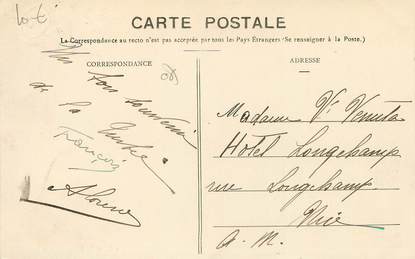 10 €
CARTE POSTALE
La Correspondance au recto n'est pas acceptée par tous les Pays Étrangers (Se renseigner à la Poste.)
CORRESPONDANCE
ADRESSE
Un bon souvenir
de la
François
Madame Vve Venuta
Hotel Longchamp
rue Longchamp
Nice
A. M.